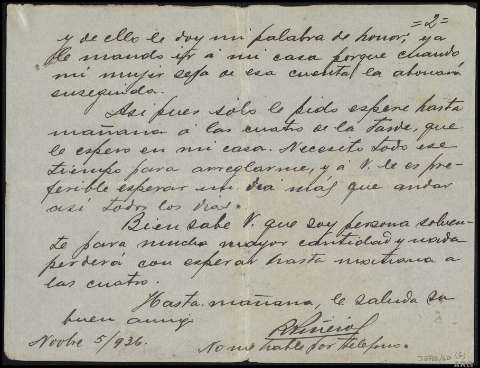 =2=
y de ello le doy mi palabra de honor, ya
le mando ir á mi casa porque cuando
mi mujer sepa de esa cuenta, la abonará
enseguida.
Así pues sólo le pido espere hasta
mañana á las cuatro de la tarde, que
le espero en mi casa. Necesito todo ese
tiempo para arreglarme, y á V. le es pre-
ferible esperar un día más que andar
así todos los días.
Bien sabe V. que soy persona solven-
te para mucha mayor cantidad y nada
perderá con esperar hasta mañana a
las cuatro.
Hasta mañana, le saluda su
buen amigo
Novbre 5/936.
No me hable por teléfono.